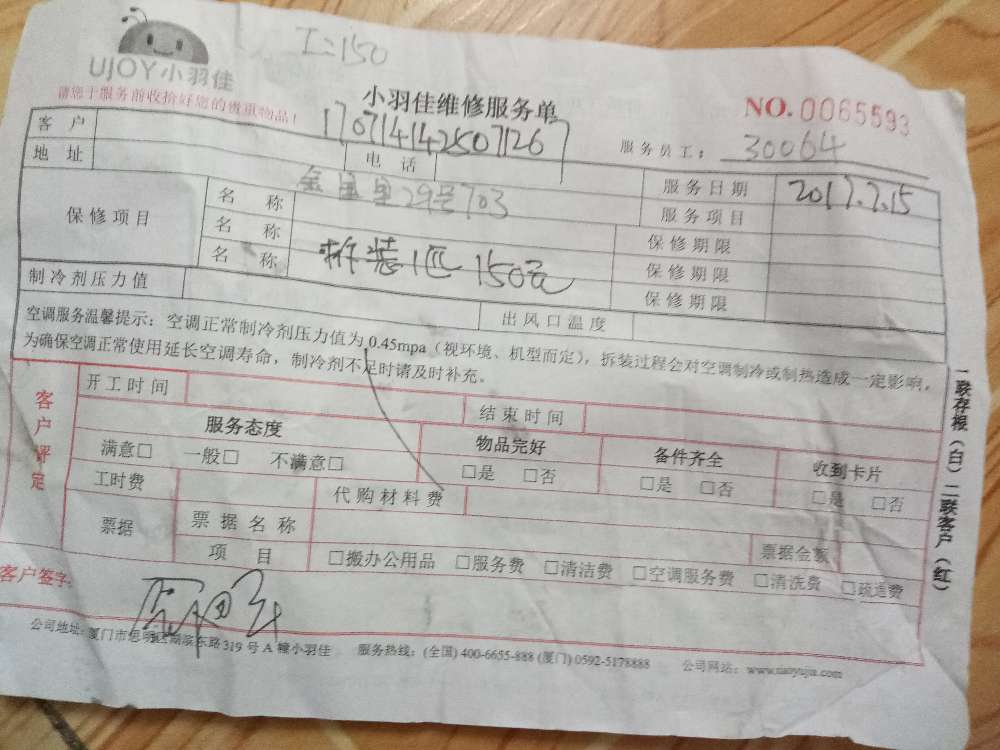 工=150
UJOY小羽佳
请您于服务前收拾好您的贵重物品！
小羽佳维修服务单
NO.0065593
客 户 1707141425071267 服务员工：30064
地 址 电 话 服务日期 2017.7.15
保修项目 名 称 29号703 服务项目
名 称 保修期限
名 称 拆装1匹 150元 保修期限
保修期限
制冷剂压力值 出风口温度
空调服务温馨提示：空调正常制冷剂压力值为0.45mpa（视环境、机型而定），拆装过程会对空调制冷或制热造成一定影响，
为确保空调正常使用延长空调寿命，制冷剂不足时请及时补充。
客户评定 开工时间 结束时间
服务态度 物品完好 备件齐全 收到卡片
满意□ 一般□ 不满意□ □是 □否 □是 □否 □是 □否
工时费 代购材料费
票据 票据名称 票据金额
项 目 □搬办公用品 □服务费 □清洁费 □空调服务费 □清洗费 □疏通费
客户签字:
公司地址: 厦门市思明区湖滨东路319号A幢小羽佳 服务热线: (全国) 400-6655-888 (厦门) 0592-5178888 公司网站: www.xiaoyujia.com
一联存根（白）二联客户（红）